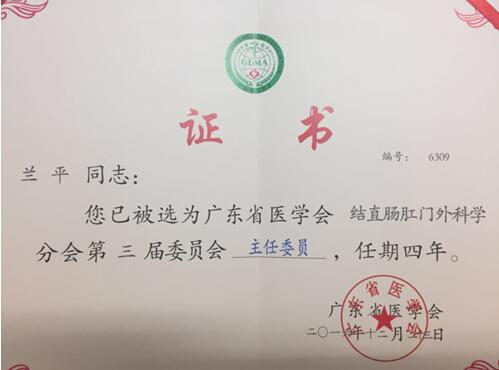 GDMA
证书
编号： 6309
兰平 同志：
您已被选为广东省医学会 结直肠肛门外科学
分会第 三 届委员会 主任委员 ，任期四年。
广东省医学会
二〇一六年十二月二十三日
广东省医学会